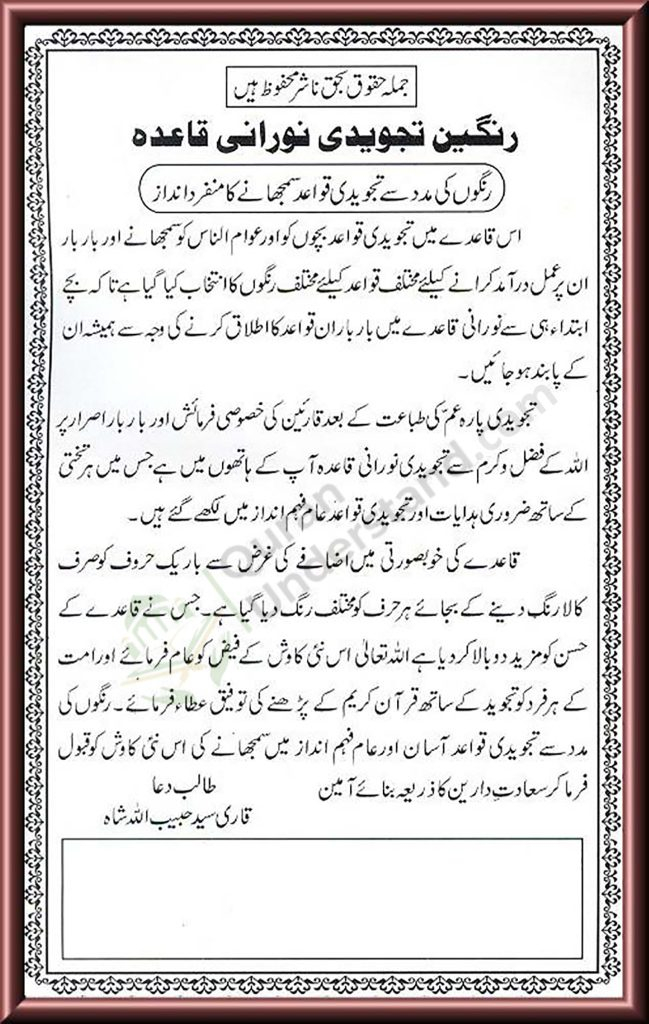 جملہ حقوق بحق ناشر محفوظ ہیں
رنگین تجویدی نورانی قاعدہ
رنگوں کی مدد سے تجویدی قواعد سمجھانے کا منفرد انداز
اس قاعدے میں تجویدی قواعد بچوں کو اور عوام الناس کو سمجھانے اور بار بار
ان پر عمل درآمد کرانے کیلئے مختلف قواعد کیلئے مختلف رنگوں کا انتخاب کیا گیا ہے تاکہ بچے
ابتداء ہی سے نورانی قاعدے میں بار بار ان قواعد کا اطلاق کرنے کی وجہ سے ہمیشہ ان
کے پابند ہو جائیں۔
تجویدی پارہ عمّ کی طباعت کے بعد قارئین کی خصوصی فرمائش اور بار بار اصرار پر
اللہ کے فضل و کرم سے تجویدی نورانی قاعدہ آپ کے ہاتھوں میں ہے جس میں ہر تختی
کے ساتھ ضروری ہدایات اور تجویدی قواعد عام فہم انداز میں لکھے گئے ہیں۔
قاعدے کی خوبصورتی میں اضافے کی غرض سے باریک حروف کو صرف
کالا رنگ دینے کے بجائے ہر حرف کو مختلف رنگ دیا گیا ہے۔ جس نے قاعدے کے
حسن کو مزید دوبالا کر دیا ہے اللہ تعالیٰ اس نئی کاوش کے فیض کو عام فرمائے اور امت
کے ہر فرد کو تجوید کے ساتھ قرآن کریم کے پڑھنے کی توفیق عطاء فرمائے۔ رنگوں کی
مدد سے تجویدی قواعد آسان اور عام فہم انداز میں سمجھانے کی اس نئی کاوش کو قبول
فرما کر سعادتِ دارین کا ذریعہ بنائے آمین
طالب دعا
قاری سید حبیب اللہ شاہ
Quran
Understand.com